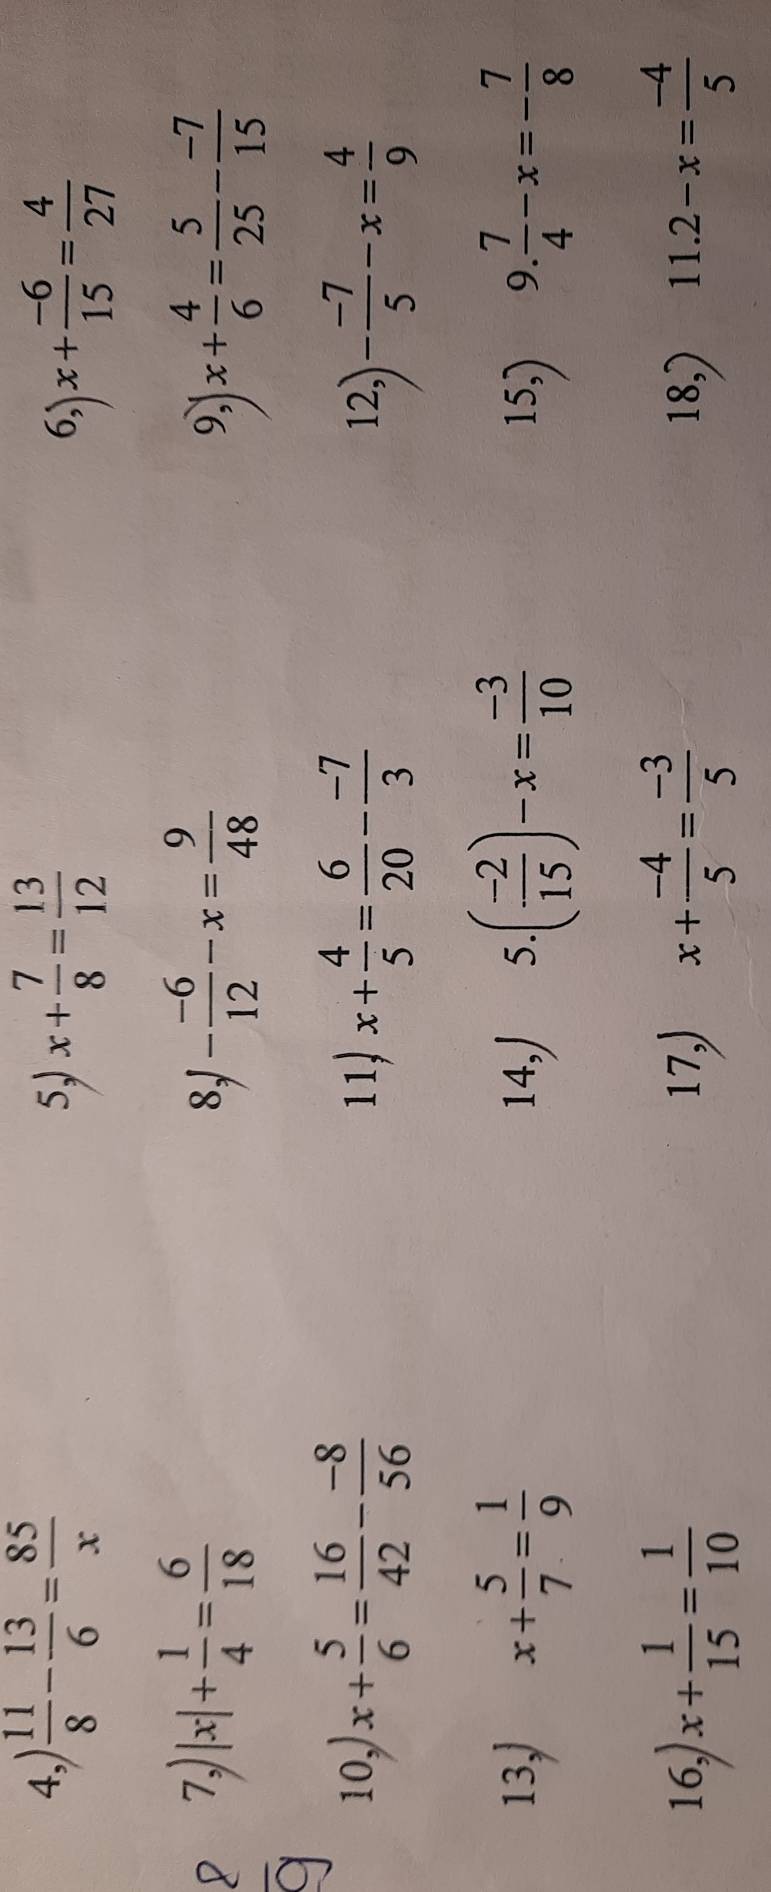 4,) 11/8 - 13/6 = 85/x 5,) x + 7/8 = 13/12 6,) x + -6/15 = 4/27
7,) |x| + 1/4 = 6/18 8,) - -6/12 - x = 9/48 9,) x + 4/6 = 5/25 - -7/15
10,) x + 5/6 = 16/42 - -8/56 11,) x + 4/5 = 6/20 - -7/3 12,) - -7/5 - x = 4/9
13,) x + 5/7 = 1/9 14,) 5.(-2/15) - x = -3/10 15,) 9. 7/4 - x = - 7/8
16,) x + 1/15 = 1/10 17,) x + -4/5 = -3/5 18,) 11.2 - x = -4/5